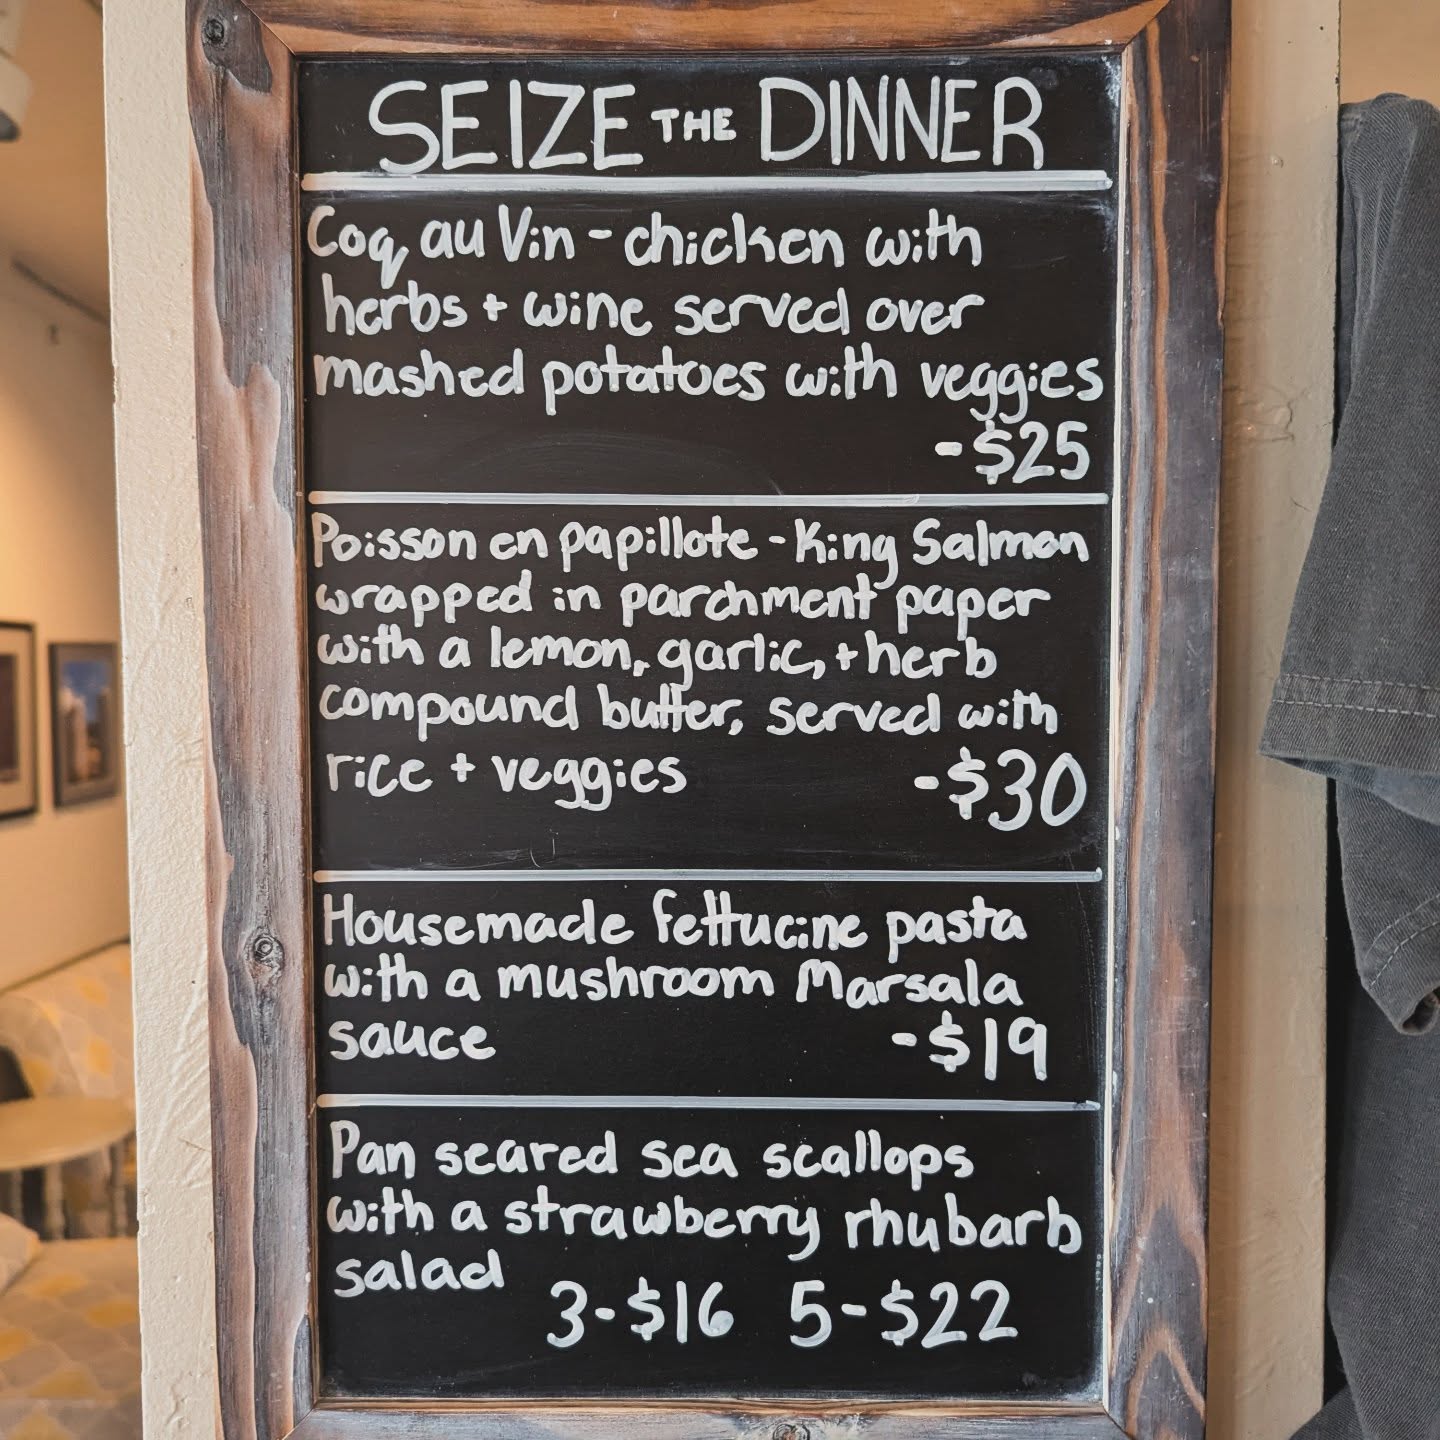 SEIZE THE DINNER
Coq au Vin - chicken with
herbs + wine served over
mashed potatoes with veggies
- $25
Poisson en papillote - King Salmon
wrapped in parchment paper
with a lemon, garlic, + herb
compound butter, served with
rice + veggies - $30
Housemade fettucine pasta
with a mushroom Marsala
sauce - $19
Pan seared sea scallops
with a strawberry rhubarb
salad
3 - $16 5 - $22